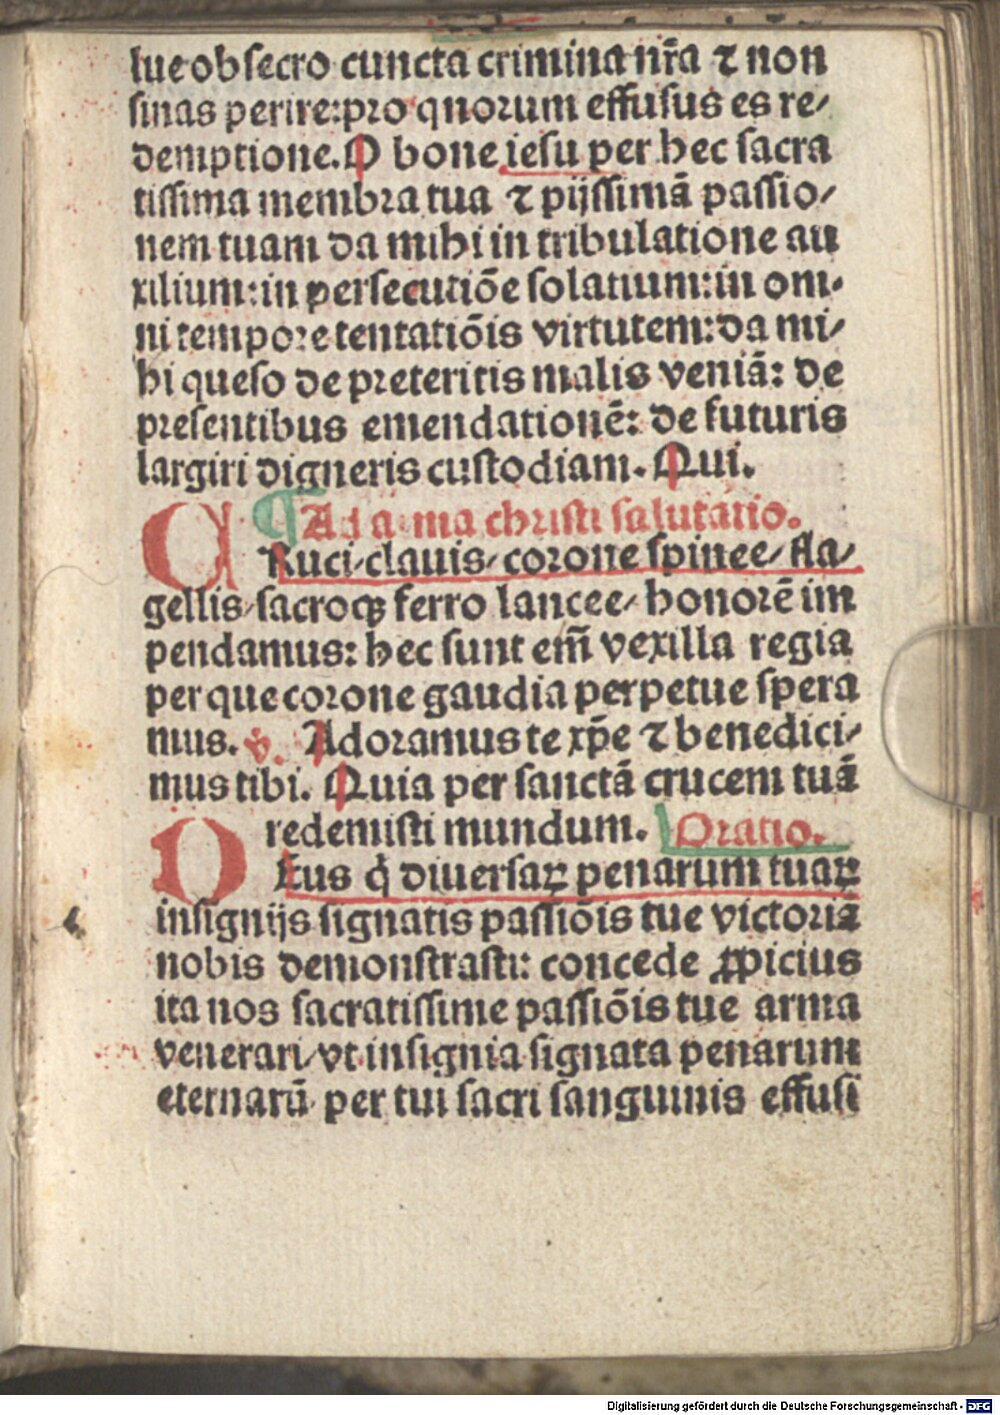 lue obsecro cuncta crimina nr̃a ⁊ non
sinas perire: pro quorum effusus es re⸗
demptione. O bone iesu per hec sacra
tissima membra tua ⁊ pijssimā passio⸗
nem tuam da mihi in tribulatione au
xilium: in persecutiōe solatium: in om⸗
ni tempore tentatiōis virtutem: da mi⸗
hi queso de preteritis malis veniā: de
presentibus emendationē: de futuris
largiri digneris custodiam. Qui.
¶ Ad arma christi salutatio.
CRuci/clauis/corone spinee/fla⸗
gellis/sacroqꝫ ferro lancee/honorē im
pendamus: hec sunt em̄ vexilla regia
per que corone gaudia perpetue spera
mus. v. Adoramus te xp̄e ⁊ benedici⸗
mus tibi. Quia per sanctā crucem tuā
redemisti mundum. Oratio.
DEus q̇ diuersaꝝ penarum tuaꝝ
insignijs signatis passiōis tue victoriā
nobis demonstrasti: concede ꝓpicius
ita nos sacratissime passiōis tue arma
venerari/vt insignia signata penarum
eternarū per tui sacri sanguinis effusi
Digitalisierung gefördert durch die Deutsche Forschungsgemeinschaft - DFG